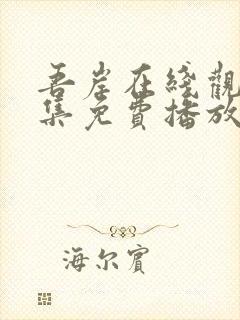 吾岸在綫觀
集免費播放
海尔賓